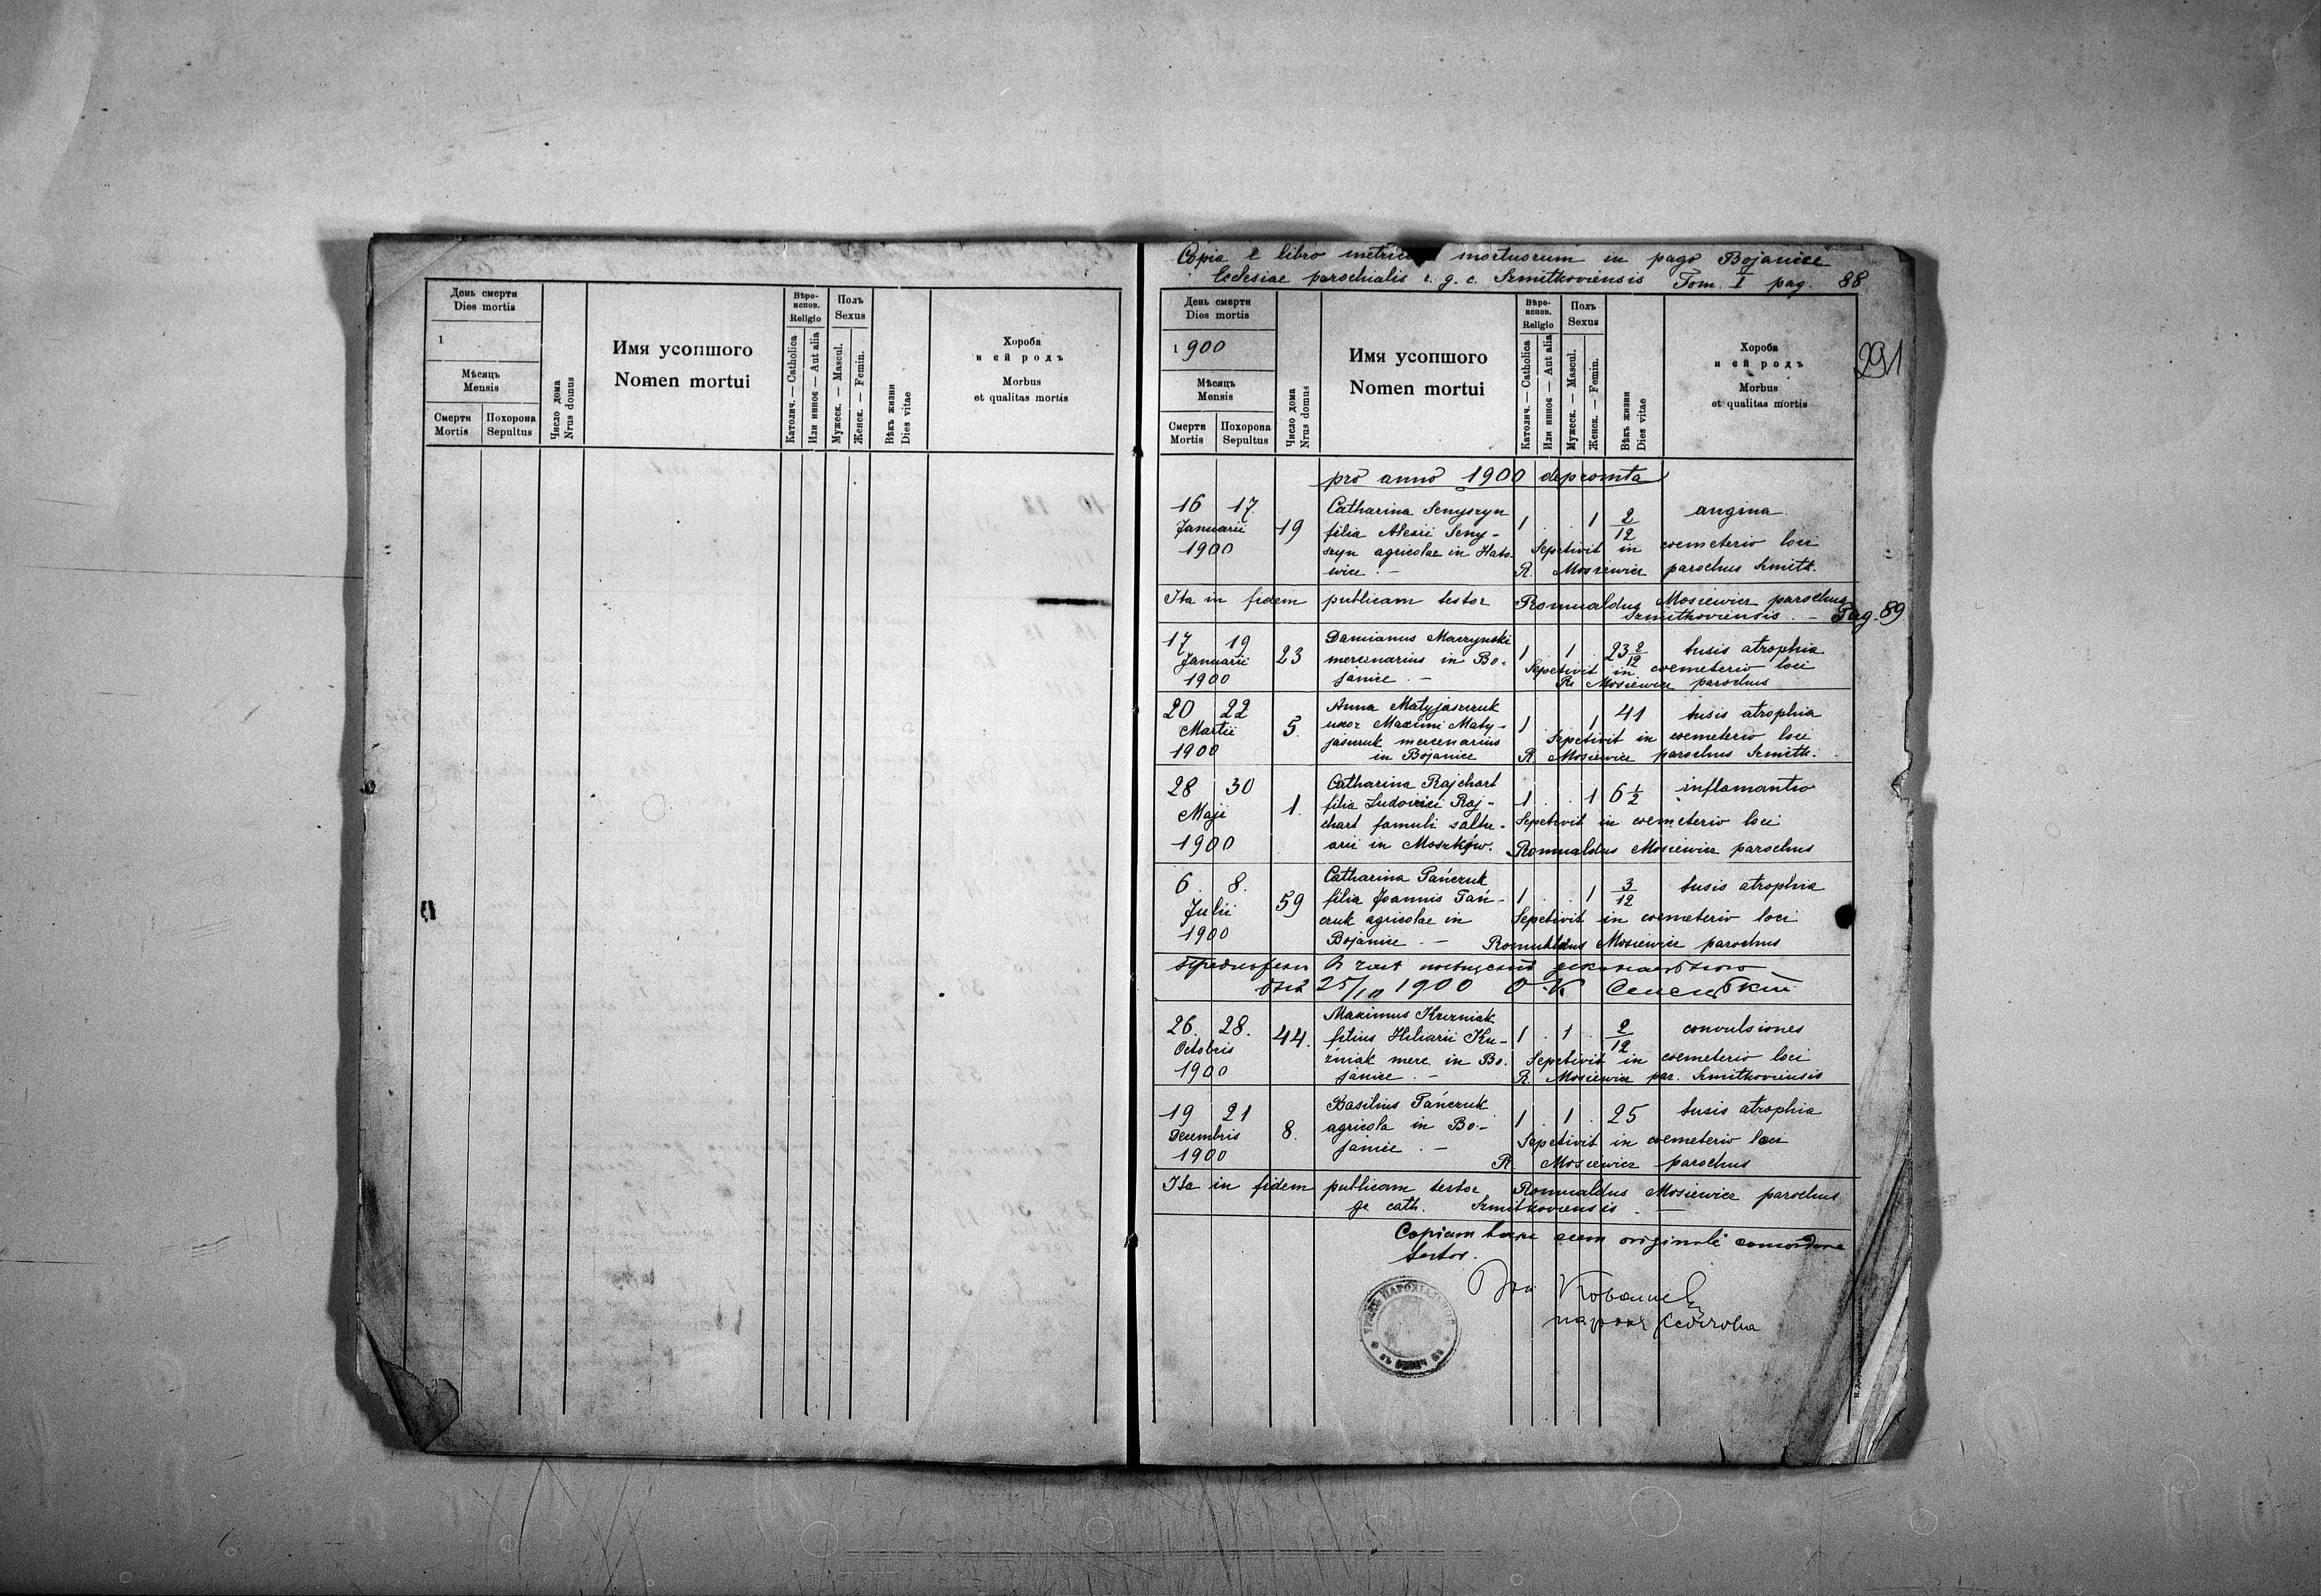 День смерти
Dies mortis
1
Мѣсяцъ
Mensis
Смерти
Mortis
Похорона
Sepultus
Число дома
Nrus domus
Имя усопшого
Nomen mortui
Вѣро-
испов.
Religio
Католич. — Catholica
Или инноє — Aut alia
Полъ
Sexus
Мужеск. — Mascul.
Женск. — Femin.
Вѣкъ жизни
Dies vitae
Хороба
и ей родъ
Morbus
et qualitas mortis
Copia e libro mortuorum in pago Bojanice
Ecclesiae parochialis r. g. c. Szmitkoviensis Tom. I pag. 88
291
День смерти
Dies mortis
1900
Мѣсяцъ
Mensis
Смерти
Mortis
Похорона
Sepultus
Число дома
Nrus domus
Имя усопшого
Nomen mortui
Вѣро-
испов.
Religio
Католич. — Catholica
Или инноє — Aut alia
Полъ
Sexus
Мужеск. — Mascul.
Женск. — Femin.
Вѣкъ жизни
Dies vitae
Хороба
и ей родъ
Morbus
et qualitas mortis
pro anno 1900 depromta
16 17
Januarii
1900
19
Catharina Senyszyn
filia Alexii Seny-
szyn agricolae in Hato-
wice . —
1 . . 1 2/12 angina
Sepelivit in coemeterio loci
R. Mosiewicz parochus Szmitk.
Ita in fidem publicam testor Romualdus Mosiewicz parochus
Szmitkoviensis . — Pag. 89
17 19
Januarii
1900
23
Damianus Maczynski
mercenarius in Bo-
janice . —
1 . 1 . 23 2/12 tusis atrophia
Sepelivit in coemeterio loci
R. Mosiewicz parochus
20 22
Martii
1900
5.
Anna Matyjaszczuk
uxor Maximi Maty-
jaszczuk mercenarius
in Bojanice
1 . . 1 41 tusis atrophia
Sepelivit in coemeterio loci
R. Mosiewicz parochus Szmitk.
28 30
Maji
1900
1.
Catharina Rajchart
filia Ludovici Raj-
chart famuli saltu-
arii in Moszków.
1 . . 1 6 1/2 inflamantio
Sepelivit in coemeterio loci
Romualdus Mosiewicz parochus
6. 8.
Julii
1900
59
Catharina Pańczuk
filia Joannis Pań-
czuk agricolae in
Bojanice . —
1 . . 1 3/12 tusis atrophia
Sepelivit in coemeterio loci
Romualdus Mosiewicz parochus
дня 25/10 1900
26. 28.
Octobris
1900
44.
Maximus Kuzniak
filius Hiliarii Ku-
źniak merc. in Bo-
janice . —
1 . 1 . 2/12 convulsiones
Sepelivit in coemeterio loci
R. Mosiewicz par. Szmitkoviensis
19 21
Decembris
1900
8.
Basilius Pańczuk
agricola in Bo-
janice . —
1 . 1 . 25 tusis atrophia
Sepelivit in coemeterio loci
R. Mosiewicz parochus
Ita in fidem publicam testor Romualdus Mosiewicz parochus
gr cath. Szmitkoviensis . —
Copiam hanc cum originali concordare
testor.
парох